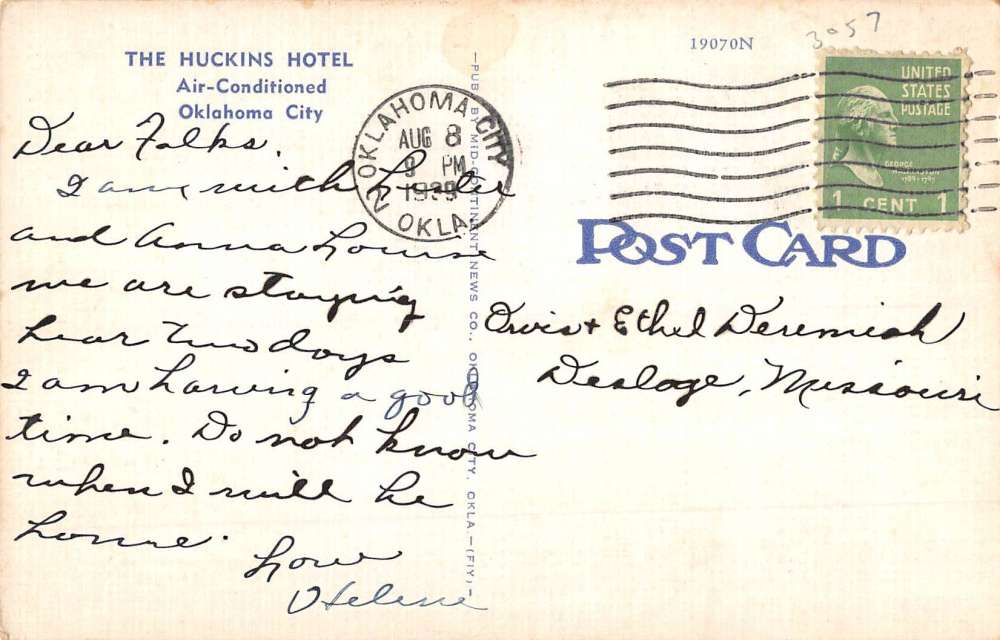 THE HUCKINS HOTEL
Air-Conditioned
Oklahoma City
Dear Folks.
I am with
and Anna Louise
we are staying
hear two days
I am having a good
time. Do not know
when I will be
home.
Love
Helene
—PUB. BY MID-CONTINENT NEWS CO., OKLAHOMA CITY, OKLA.—(FIY)—
OKLAHOMA CITY
AUG 8
9 PM
1939
2 OKLA.
19070N
3057
UNITED
STATES
POSTAGE
GEORGE
WASHINGTON
1789-1797
1 CENT 1
POST CARD
Orvis + Ethel Deremiah
Desloge, Missouri